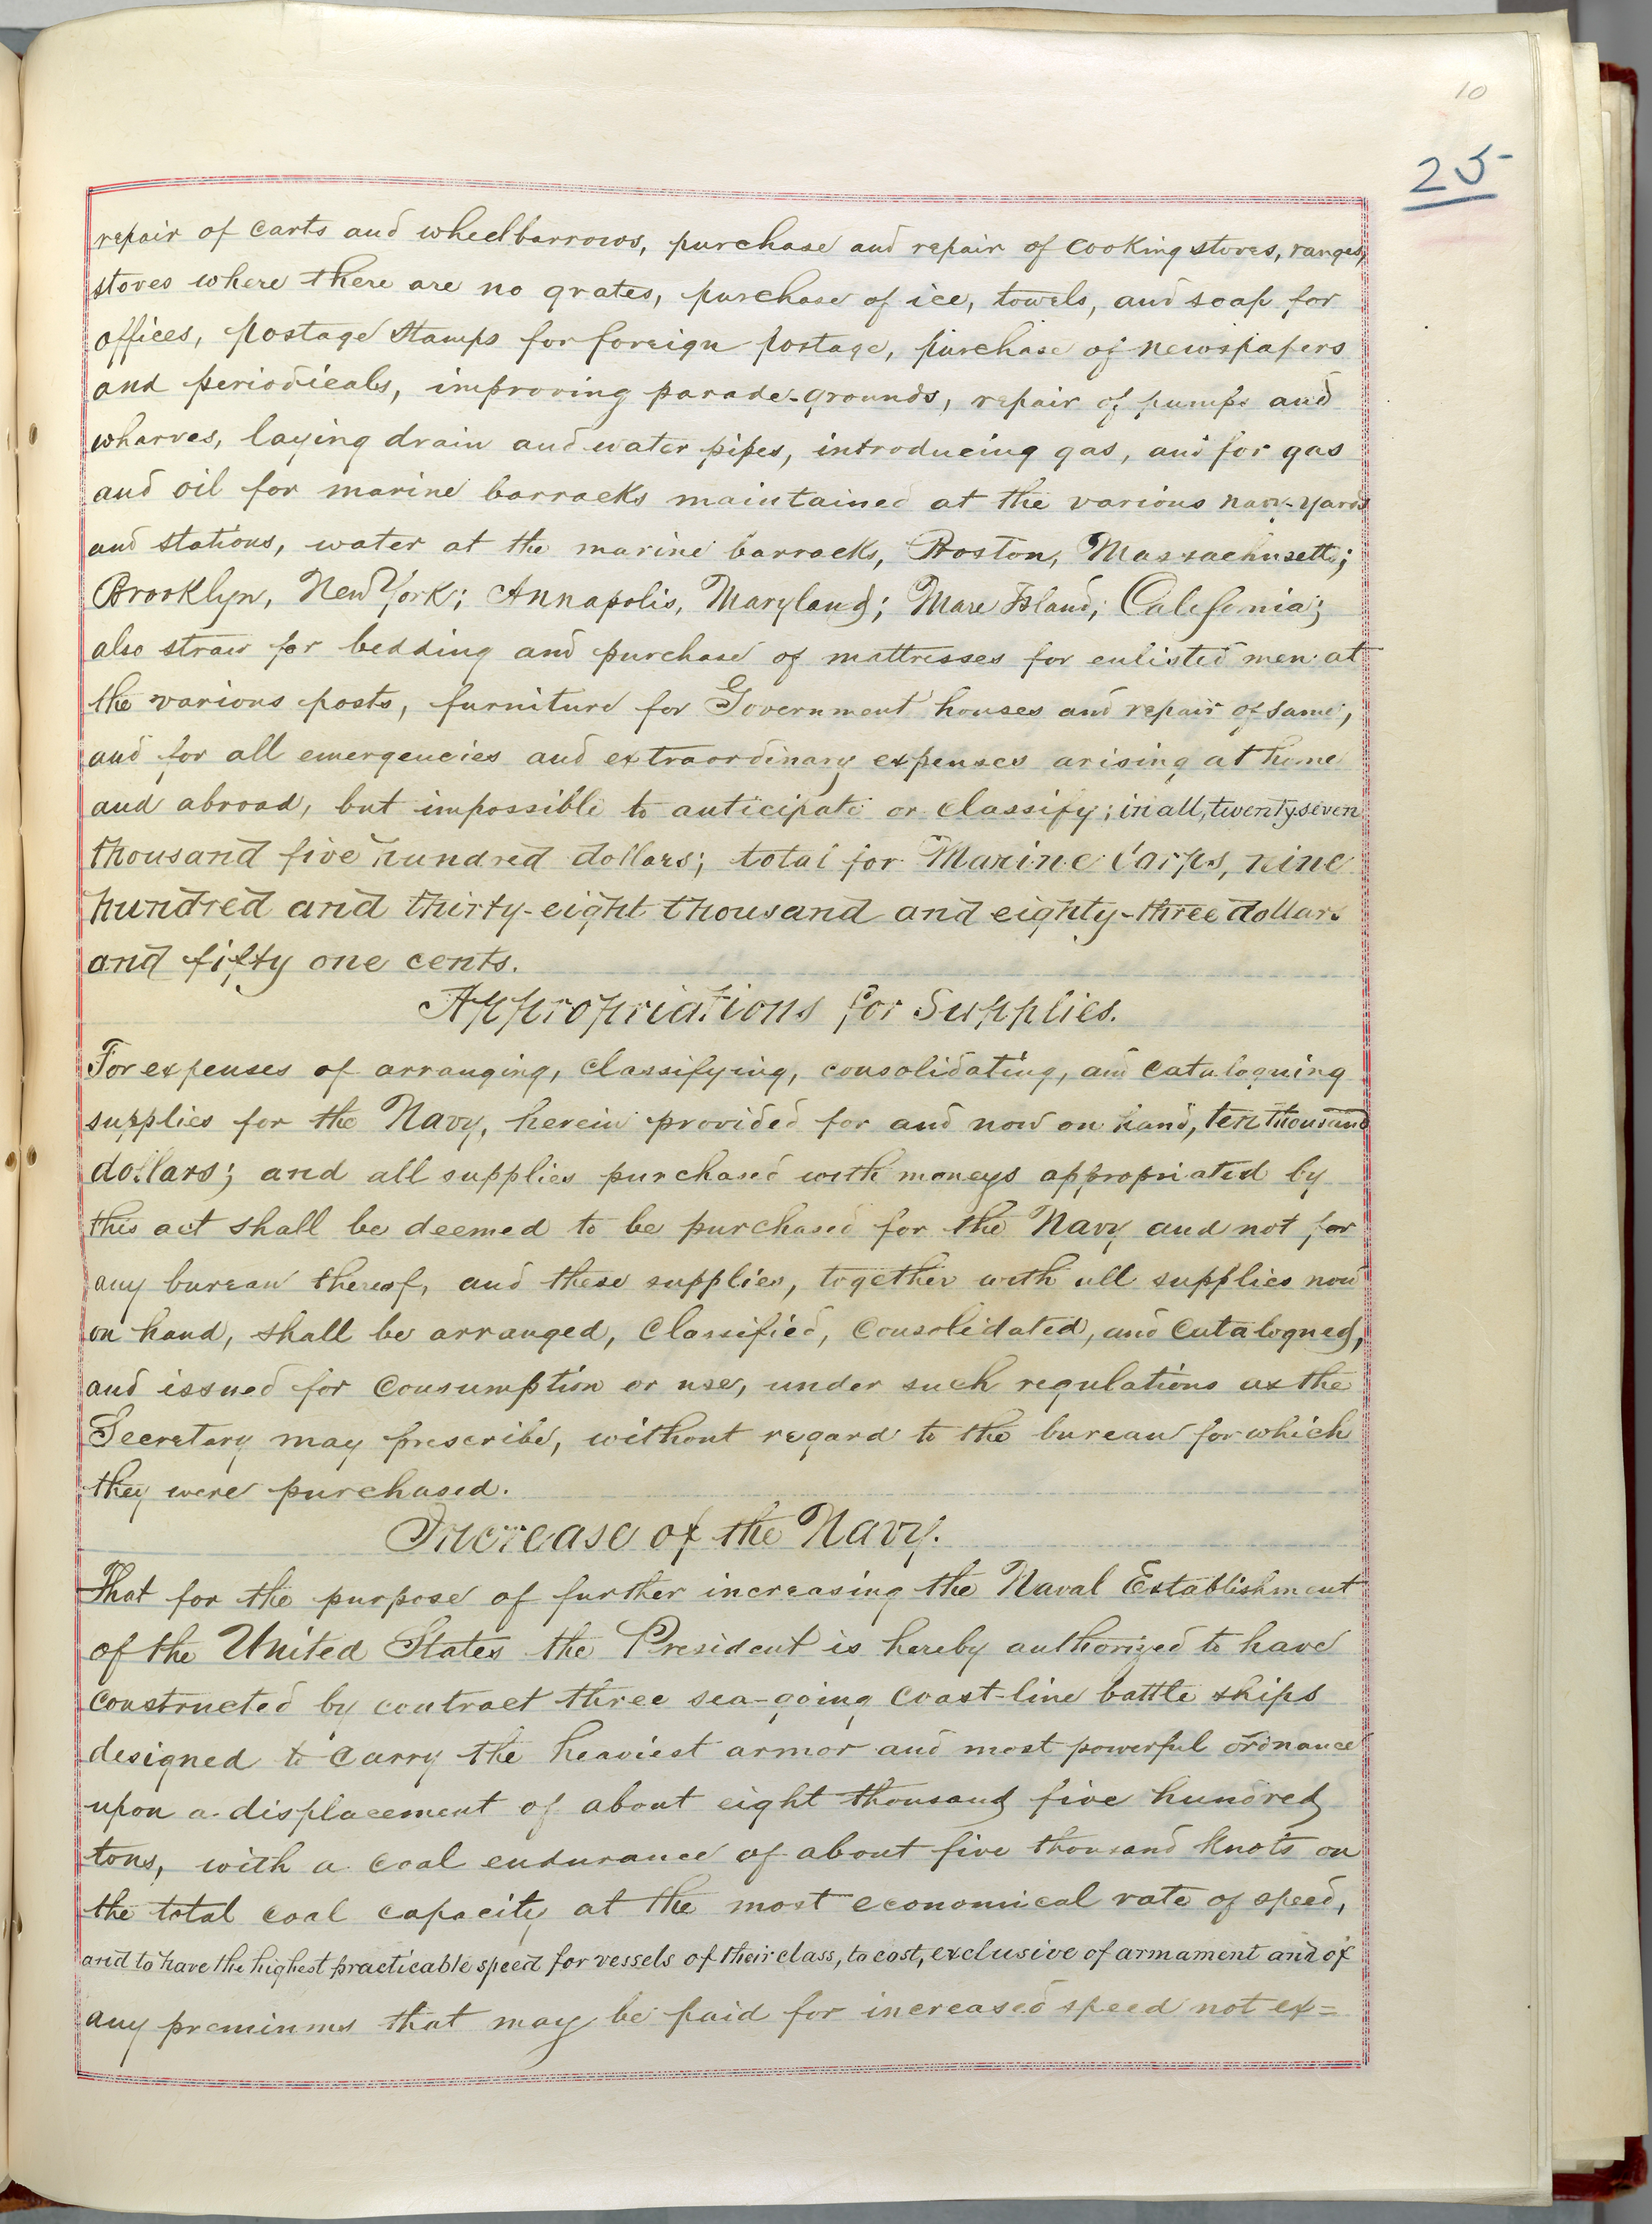 10
25
repair of carts and wheelbarrows, purchase and repair of cooking stoves, ranges,
stoves where there are no grates, purchase of ice, towels, and soap for
offices, postage stamps for foreign postage, purchase of newspapers
and periodicals, improving parade-grounds, repair of pumps and
wharves, laying drain and water pipes, introducing gas, and for gas
and oil for marine barracks maintained at the various navy-yards
and stations, water at the marine barracks, Boston, Massachusetts;
Brooklyn, New York; Annapolis, Maryland; Mare Island, California;
also straw for bedding and purchase of mattresses for enlisted men at
the various posts, furniture for Government houses and repair of same,
and for all emergencies and extraordinary expenses arising at home
and abroad, but impossible to anticipate or classify; in all, twenty-seven
thousand five hundred dollars; total for Marine Corps, nine
hundred and thirty-eight thousand and eighty-three dollars
and fifty one cents.
Appropriations for Supplies.
For expenses of arranging, classifying, consolidating, and cataloguing
supplies for the Navy, herein provided for and now on hand, ten thousand
dollars; and all supplies purchased with moneys appropriated by
this act shall be deemed to be purchased for the Navy and not for
any bureau thereof, and these supplies, together with all supplies now
on hand, shall be arranged, classified, consolidated, and catalogued,
and issued for consumption or use, under such regulations as the
Secretary may prescribe, without regard to the bureau for which
they were purchased.
Increase of the Navy.
That for the purpose of further increasing the Naval Establishment
of the United States the President is hereby authorized to have
constructed by contract three sea-going coast-line battle ships
designed to carry the heaviest armor and most powerful ordnance
upon a displacement of about eight thousand five hundred
tons, with a coal endurance of about five thousand knots on
the total coal capacity at the most economical rate of speed,
and to have the highest practicable speed for vessels of their class, to cost, exclusive of armament and of
any premiums that may be paid for increased speed not ex=